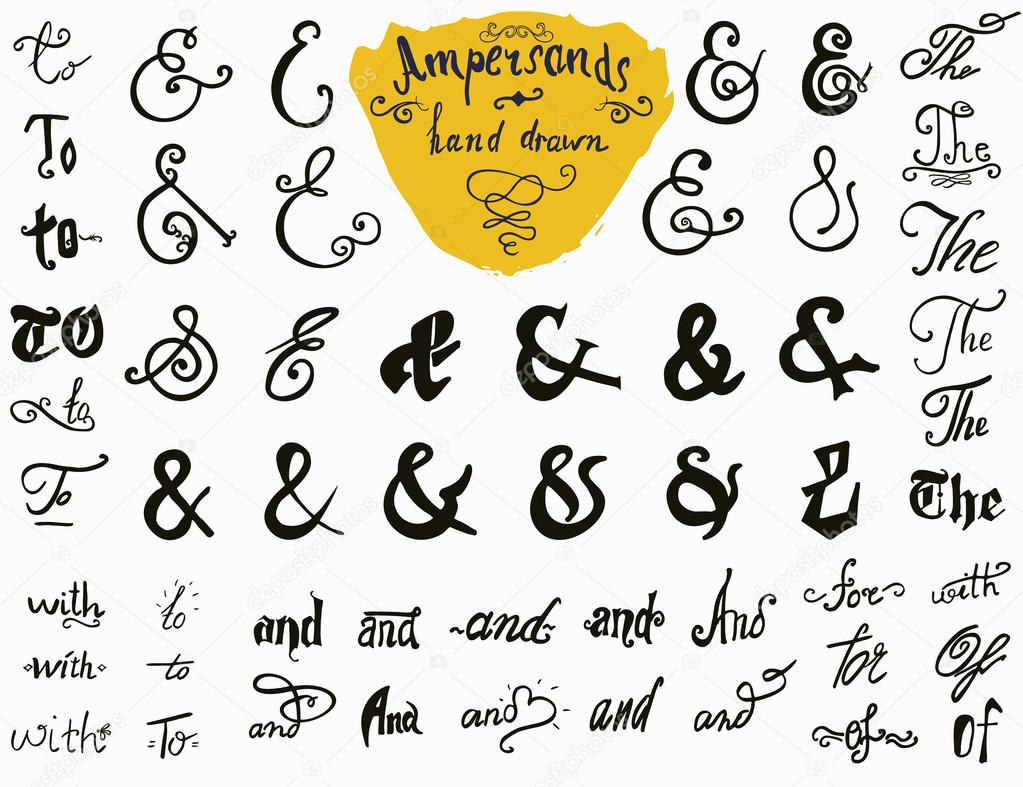 to & & Ampersands & & The
To hand drawn The
to & & & & The
TO & & & & & & The
to The
To & & & & & & The
The
with to and and and and And for with
with to for Of
with To and And and and and of Of